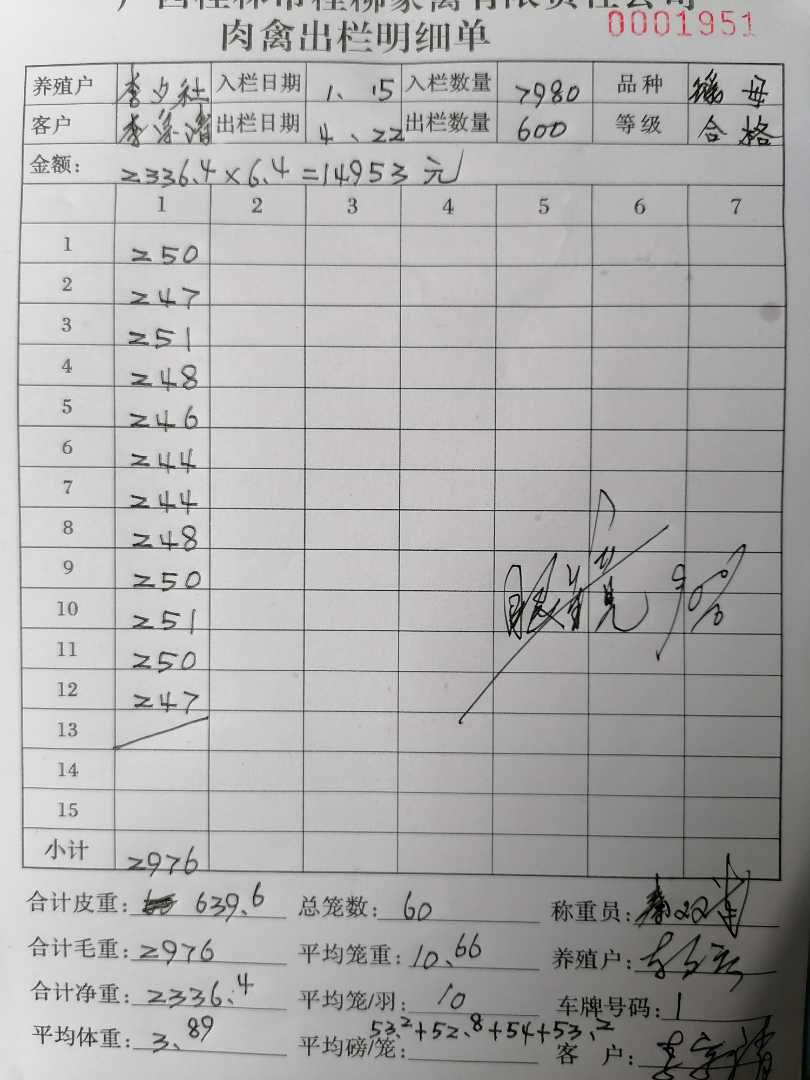 广西桂林市桂柳家禽有限责任公司
肉禽出栏明细单 0001951
养殖户 李 入栏日期 1、15 入栏数量 7980 品种 母
客户 李 出栏日期 4、22 出栏数量 600 等级 合格
金额: 2336.4×6.4=14953元
1 2 3 4 5 6 7
1 250
2 247
3 251
4 248
5 246
6 244
7 244
8 248
9 250
10 251
11 250
12 247
13
14
15
小计 2976
90%
合计皮重: 639.6 总笼数: 60 称重员:
合计毛重: 2976 平均笼重: 10.66 养殖户:
合计净重: 2336.4 平均笼/羽: 10 车牌号码: 1
平均体重: 3.89 平均磅/笼: 53.2+52.8+54+53.2 客户: